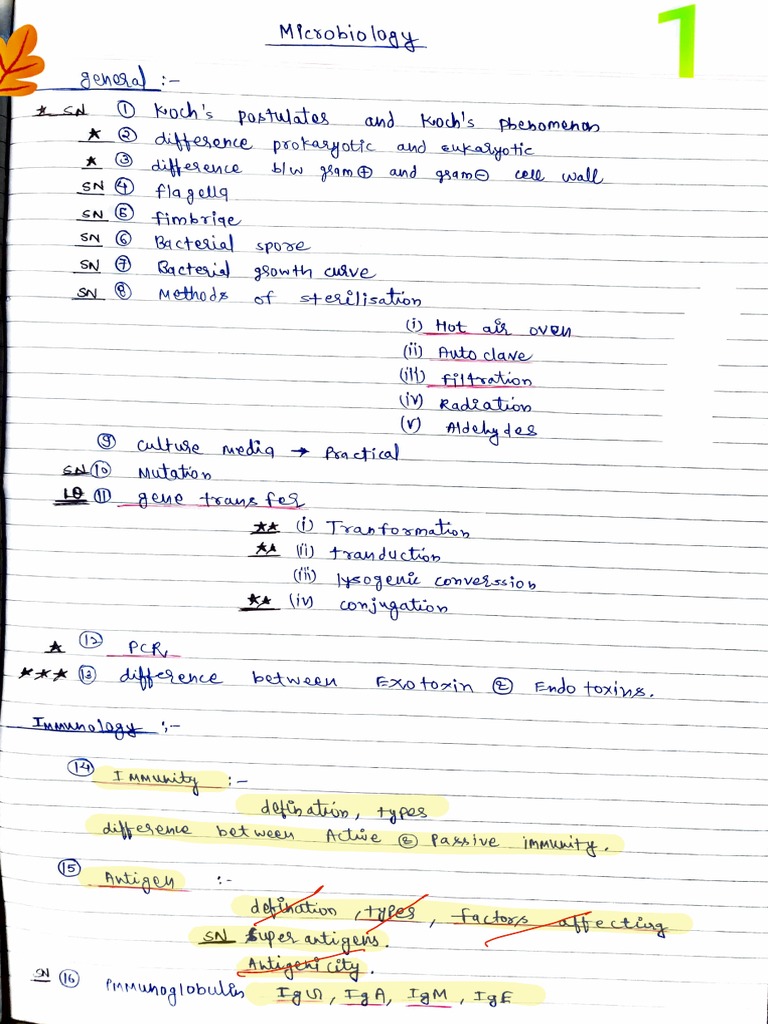 Microbiology
1
general :-
* SN ① Koch's postulates and Koch's Phenomenon
* ② difference prokaryotic and eukaryotic
* ③ difference b/w gram⊕ and gram⊖ cell wall
SN ④ flagella
SN ⑤ fimbriae
SN ⑥ Bacterial spore
SN ⑦ Bacterial growth curve
SN ⑧ Methods of sterilisation
(i) Hot air oven
(ii) Autoclave
(iii) filtration
(iv) Radiation
(v) Aldehydes
⑨ culture media → Practical
SN ⑩ Mutation
LQ ⑪ gene transfer
** (i) Tranformation
** (ii) tranduction
(iii) lysogenic converssion
** (iv) conjugation
* ⑫ PCR
*** ⑬ difference between Exotoxin & Endotoxins.
Immunology :-
⑭ Immunity :-
defination, types
difference between Active & Passive immunity.
⑮ Antigen :-
defination, types, factors affecting
SN Super antigens.
Antigenicity.
SN ⑯ Immunoglobulin IgG, IgA, IgM, IgE